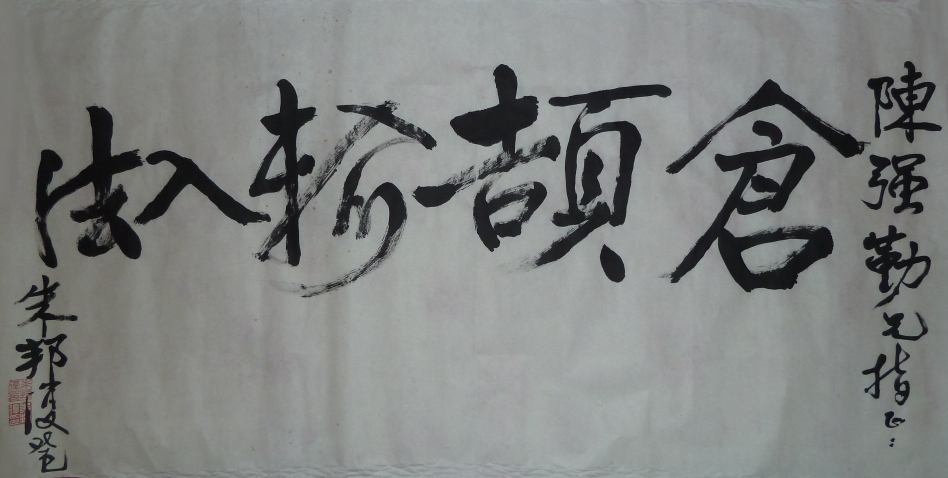 陳强勤兄指正
倉頡輸入法
朱邦復